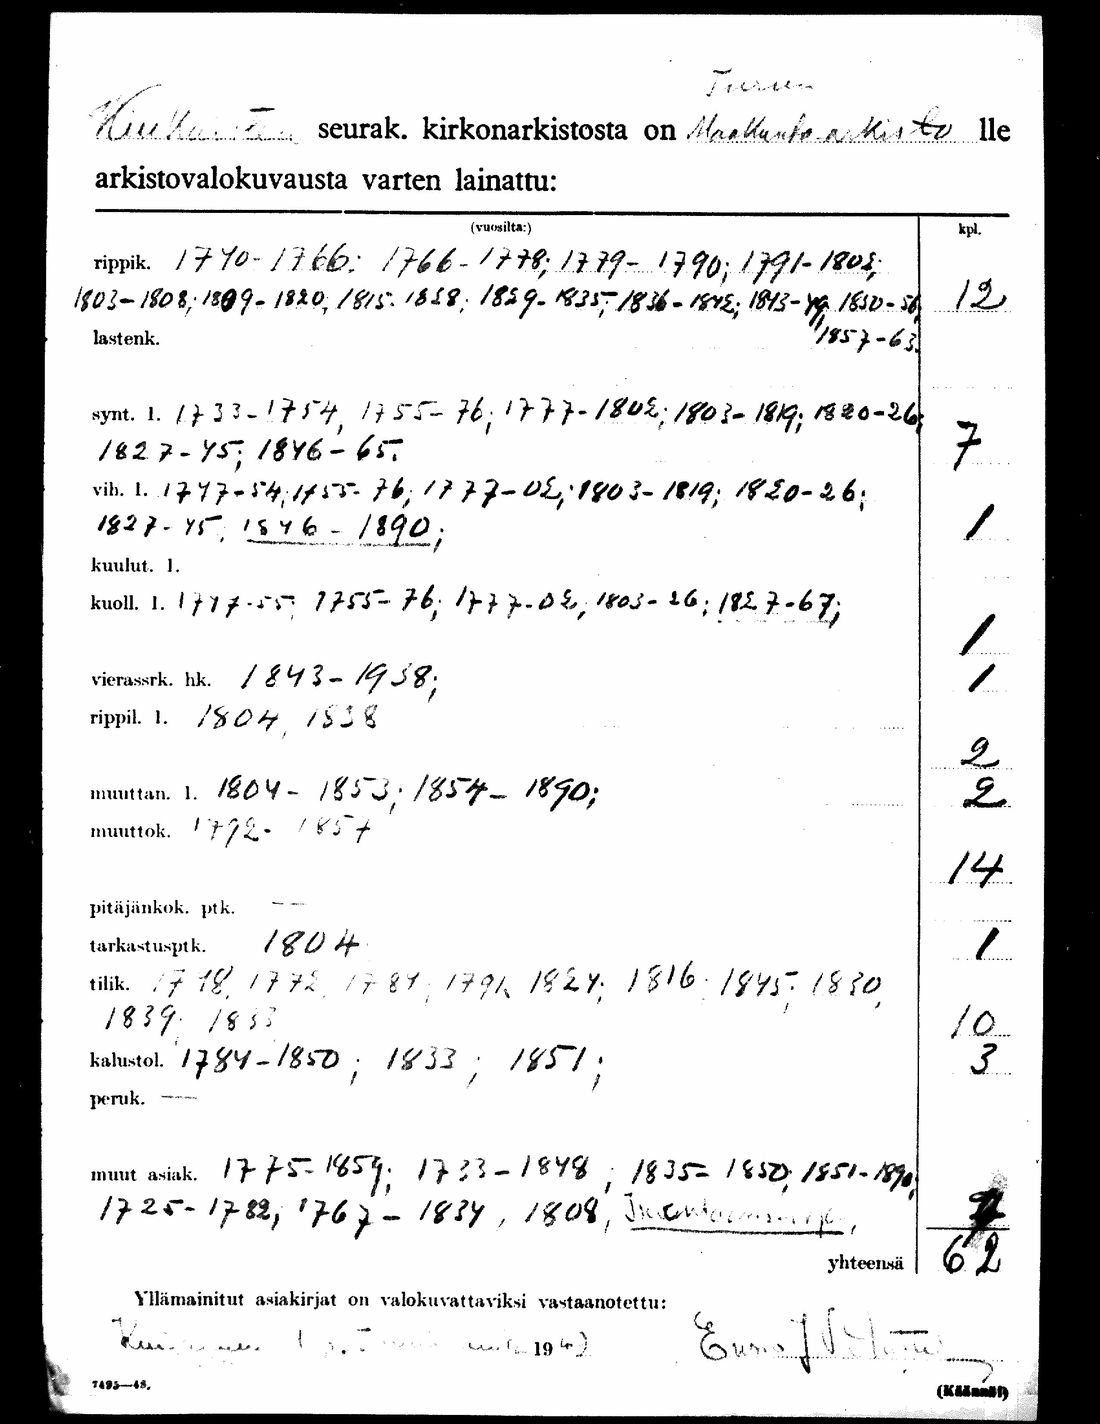 Turun
Kiukaisten seurak. kirkonarkistosta on Maakunta-arkisto lle
arkistovalokuvausta varten lainattu:
(vuosilta:) kpl.
rippik. 1740-1766; 1766-1778; 1779-1790; 1791-1802;
1803-1808; 1809-1820; 1815-1828; 1829-1835; 1836-1842; 1843-49; 1850-56; 12
lastenk. 1857-63.
synt. l. 1733-1754, 1755-76; 1777-1802; 1803-1819; 1820-26;
1827-45; 1846-65. 7
vih. l. 1747-54; 1755-76; 1777-02; 1803-1819; 1820-26;
1827-45, 1846-1890; 1
kuulut. l.
kuoll. l. 1747-55; 1755-76; 1777-02, 1803-26; 1827-67;
1
vierassrk. hk. 1843-1938; 1
rippil. l. 1804, 1838
2
muuttan. l. 1804-1853; 1854-1890; 2
muuttok. 1792-1857
14
pitäjänkok. ptk. —
tarkastusptk. 1804 1
tilik. 1748, 1772, 1784, 1791, 1824; 1816; 1845; 1830,
1839; 1833 10
kalustol. 1784-1850; 1833; 1851; 3
peruk. —
muut asiak. 1775-1859; 1733-1848; 1835-1850; 1851-1890;
1725-1782; 1767-1834, 1808,
yhteensä 62
Yllämainitut asiakirjat on valokuvattaviksi vastaanotettu:
19
7495—48.
(Käännä!)